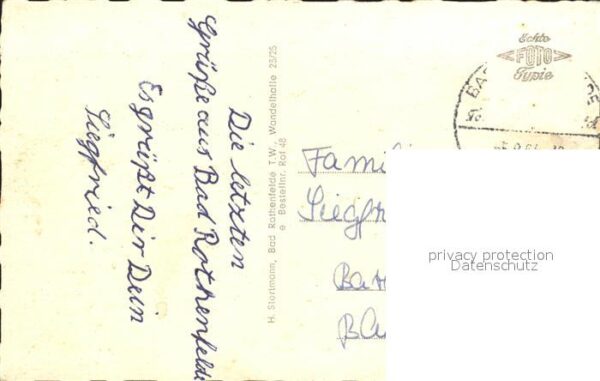 Die letzten
Grüße aus Bad Rothenfelde
Es grüßt Dir Dein
Siegfried.
H. Stortmann, Bad Rothenfelde T.W., Wandelhalle 25/25
e Bestellnr. Rof 48
Echte
FOTO
Typie
BA
DE
Famil
Siegfr
Ba
Bl
privacy protection
Datenschutz